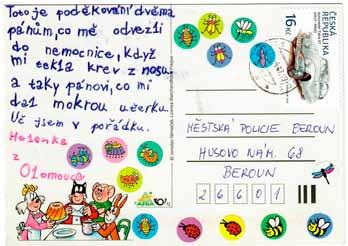 Toto je poděkování dvěma
pánům, co mě odvezli
do nemocnice, když
mi tekla krev z nosu
a taky pánovi, co mi
dal mokrou utěrku.
Už jsem v pořádku.
Helenka
z
Olomouce
16 Kč
ČESKÁ
REPUBLIKA
MĚSTSKÁ POLICIE BEROUN
HUSOVO NÁM. 68
BEROUN
26601